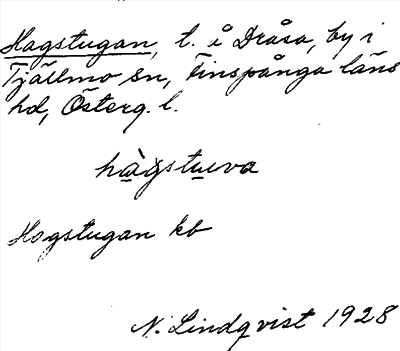 Hagstugan, l. å Dråsa, by i
Tjällmo sn, Finspånga läns
hd, Österg. l.
hàgstuva
Hagstugan kb
N. Lindqvist 1928